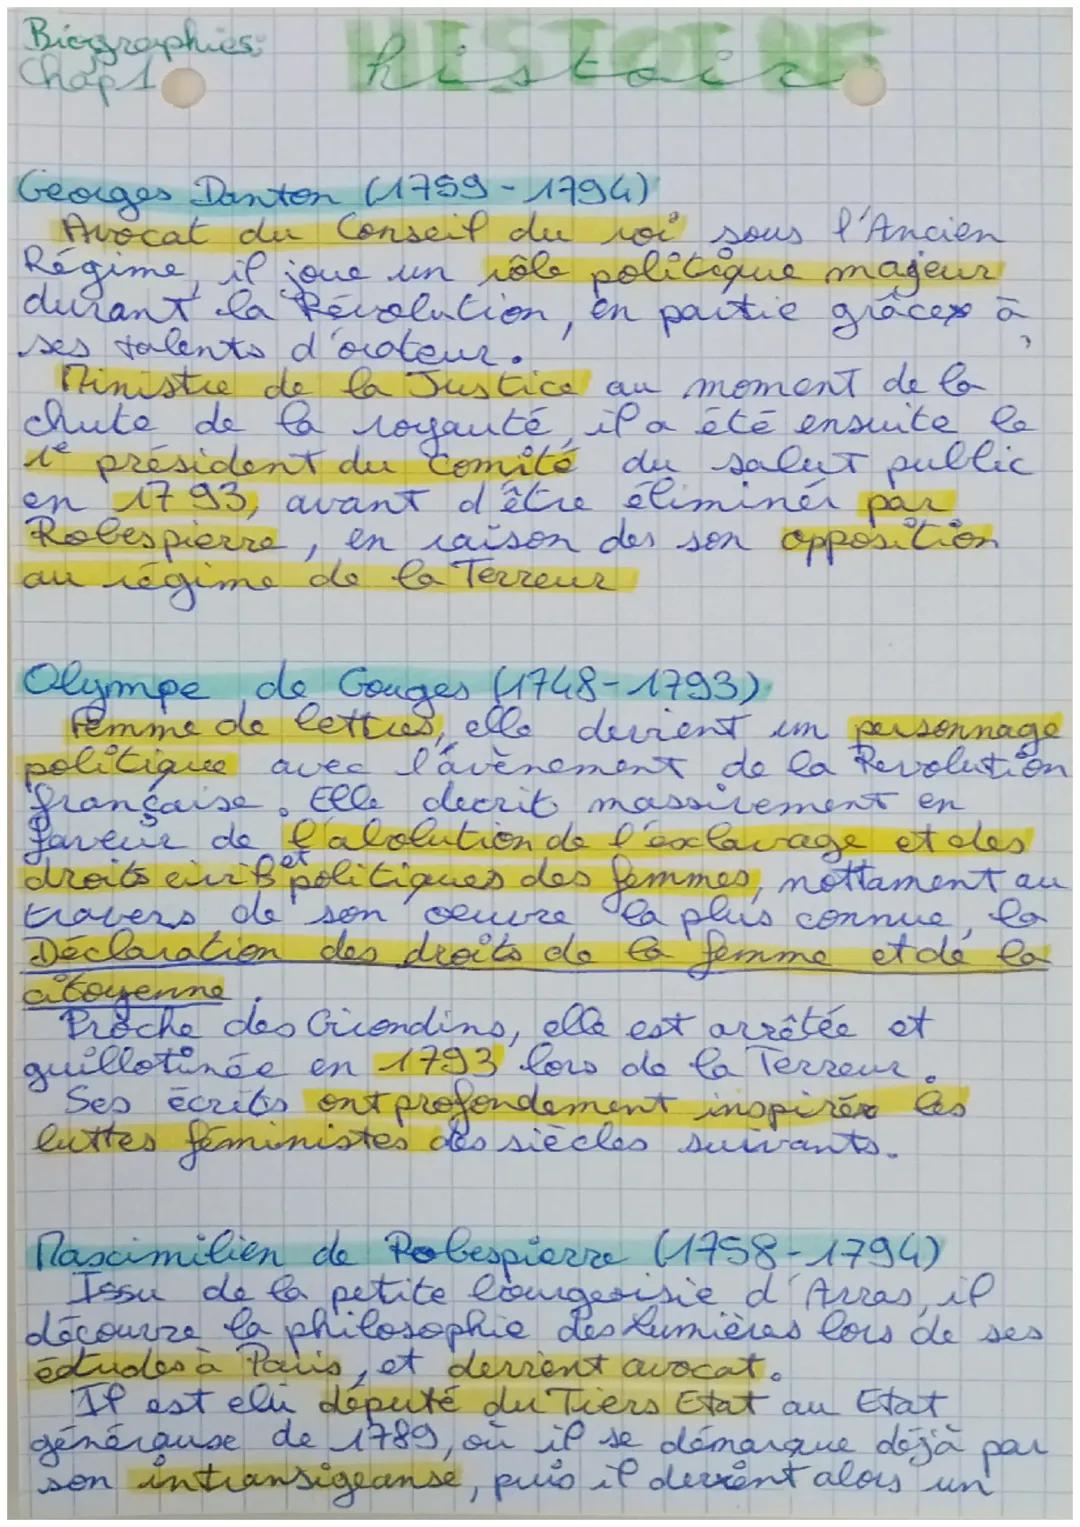 Biographies:
Chap 1
HISTOIRE
histoire
Georges Danton (1759-1794)
Avocat du Conseil du roi sous l'Ancien
Régime, il joue un rôle politique majeur
durant la Révolution, en partie grâce à
ses talents d'orateur.
Ministre de la Justice au moment de la
chute de la royauté, il a été ensuite le
1e président du comité du salut public
en 1793, avant d'être éliminér par
Robespierre, en raison des son opposition
au régime de la Terreur
Olympe de Gouges (1748-1793)
Femme de lettres, elle devient un personnage
politique avec l'avènement de la Révolution
française. Elle decrit massivement en
faveur de l'abolution de l'esclavage et des
droits civils et politiques des femmes, nottament au
travers de son oeuvre la plus connue, la
Déclaration des droits de la femme et de la
citoyenne.
Proche des Girondins, elle est arrêtée et
guillotinée en 1793 lors de la Terreur.
Ses écrits ont profondement inspirés les
luttes féministes des siècles suivants.
Maximilien de Robespierre (1758-1794)
Issu de la petite bourgeoisie d'Arras, il
découvre la philosophie des Lumières lors de ses
études à Paris, et devient avocat.
Il est élu député du Tiers Etat au Etat
généraux de 1789, où il se démarque déjà par
son intransigeanse, puis il devient alors un